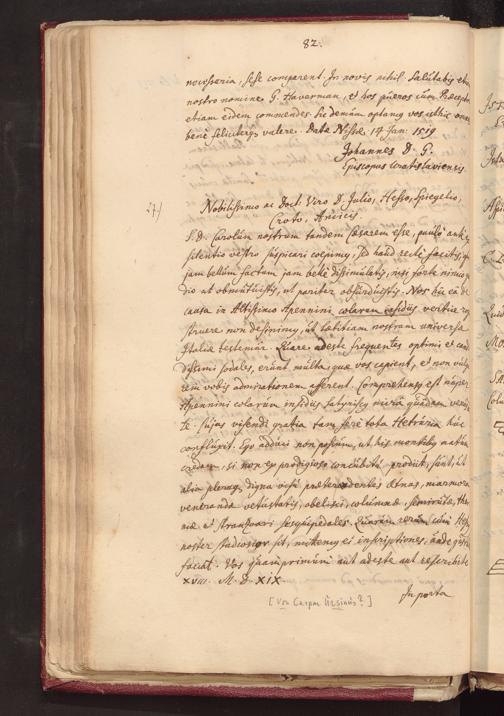 82.
necessaria, sese comparent. In novis nihil. Salutabis etiam
nostro nomine G. Haverman, et hos pueros cum Præcept
etiam eidem commendes. Hic demum optamus vos
bene feliciterq valere. Datæ Nissæ 14 Jan. 1519
Johannes D. G.
Episcopus Wratislaviensis
27/
Nobilissimo ac Doct. Viro D. Julio, Hesso, Spiegelio,
Croto, Amicis.
S. D. Carolum nostrum tandem Cæsarem esse, paulo ante
silentio vestro suspicari coepimus, sed haud recte facitis,
jam bellum factum jam belle dissimulatis, nisi forte nimio
dio ut obmutuistis, ut pariter obsurduistis. Nos huc ea de
causa in Altissimo Apennini colarum insidus vertice
struere non desinimus, ut lætitiam nostram universæ
Italiæ testemur. Quare adeste frequentes optimi et
dissimi sodales, erunt multa quæ vos capient, et non
rem vobis admirationem afferent. Comprehensus est nuper
Apennini colarum insidus satyriscus mira quadam
te. Cujus visendi gratia tam fere tota Hetruria huc
confluxit. Ego adduci non possum, ut his montibus natum
credam, si non ex prodigioso concubitu prodiit, sunt, ut
alia pleraq, digna visu præter ardentes Ætnas, marmora
veneranda vetustatis, obelisci, columnæ semirutæ,
et sesquipedales. Quarum rerum cum
noster studiosior sit, mittemus ei inscriptiones, unde
faciat. Vos quamprimum aut adeste aut rescribite
xviii. M. D. XIX
In porta
[Von Caspar Ursinus?]